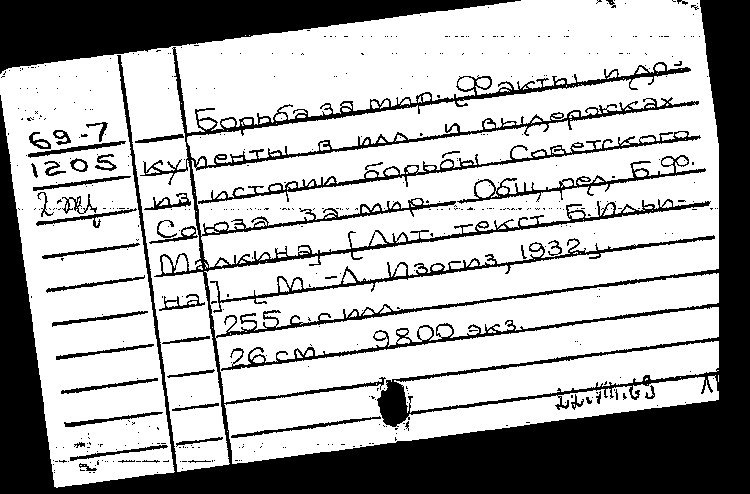 Борьба за мир. [Факты и до-
69-7
1205 кументы в илл. и выдержках
2 эк из истории борьбы Советского
Союза за мир. Общ. ред. Б.Ф.
Малкина]. [Лит. текст Б. Ильи-
на]. [М.-Л., Изогиз, 1932].
255 с. с илл.
26 см. 9800 экз.
22.VII.69